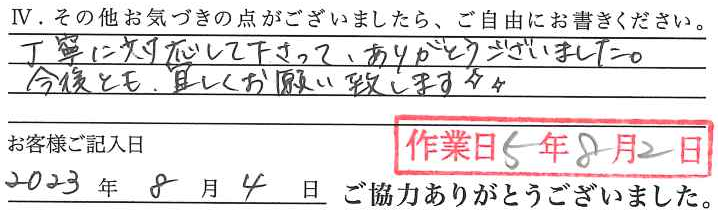 Ⅳ．その他お気づきの点がございましたら、ご自由にお書きください。
丁寧に対応して下さって、ありがとうございました。
今後とも、宜しくお願い致します☆☆
お客様ご記入日
作業日5年8月2日
2023年8月4日
ご協力ありがとうございました。